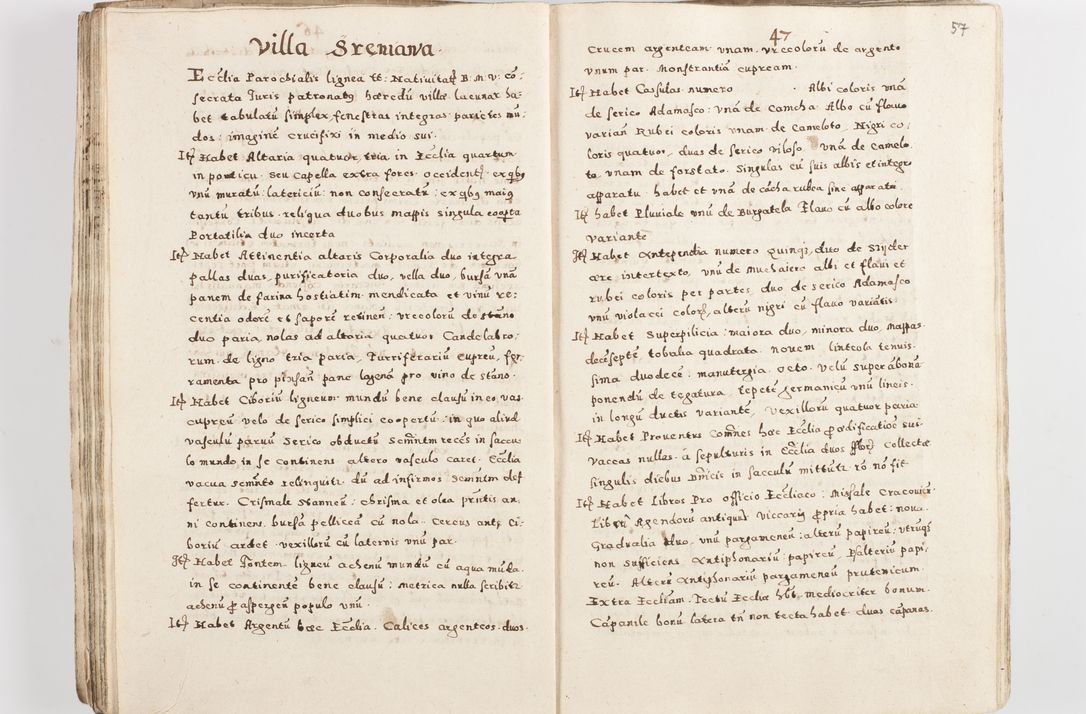 Villa Sremawa.
Ec̃clia Parochialis lignea tt: Natiuitatꝭ B: M: V: cõ=
secrata Iuris patronatꝰ hæredũ villæ: lacunar ha=
bet tabulatũ simplex, fenestras integras: parietes nu=
dos: imaginẽ crucifixi in medio sui.
Itꝭ Habet Altaria quatuor, tria in Ec̃clia quartum
in porticu: seu Capella extra fores. Occidentꝭ: ex qibꝰ
vnũ muratũ: latericiũ: non consecratũ: ex qibꝰ maiꝰ
tantũ tribus. reliqua duobus mappis singula coopta
Portatilia duo incerta
Itꝭ Habet Attinentia altaris Corporalia duo integra
pallas duas, purificatoria duo, vella duo, bursã vnã
panem de farina hostiatim mendicata et vinũ re=
centia odorẽ et saporẽ retinen: vrceolorũ de stãno
duo paria, nolas ad altaria quatuor Candelabro=
rum. de ligno tria paria, Turriferariũ cupreũ, fer=
ramenta pro pinsañ pane lagenã pro vino de stãno.
Itꝭ Habet Ciboriũ ligneum. mundũ bene clausũ in eo. vas
cupreũ velo de serico simplici coopertũ: in quo aliud
vasculũ paruũ serico obductũ Semñtm recẽs in saccu=
lo mundo, in se continens altero vasculo caret. Ec̃clia
vacua semñto relinquitꝛ dũ ad infirmos: semñtm def=
fertur. Crismale stanneũ: chrisma et olea prntis an=
ni continens. bursã pelliceã cũ nola. Cereus antꝭ Ci=
boriũ ardet. vexillorũ cũ laternis vnũ par.
Itꝭ Habet Fontem ligneũ achenũ mundũ cũ aqua mũda.
in se continentẽ bene clausũ: metrica nulla scribitꝛ
achenũ ꝓ aspergeñ populo vnũ.
Itꝭ Habet Argentũ hæc Ec̃clia. Calices argenteos. duos.
47
57
Crucem argenteam vnam. vrceolorũ de argento
vnum par. Monstrantiã cupream.
Itꝭ Habet Cassulas numero . Albi coloris vnã
de serico Adamasco: vnã de camcha Albo cũ flauo
varian̄ Rubei coloris vnam de Cameloto, Nigri co=
loris quatuor, duas de serico viloso. vnã de camelo=
to. vnam de forstato. Singulas cũ suis albis et integro
apparatu. habet et vnã de cãcha rubea sine apparatu
Itꝭ habet Pluviale vnũ de Burgatela Flauo cũ albo colore
variante
Itꝭ Habet Antependia numero quinqꝫ, duo de Snijder
ære intertexto, vnũ de Muchaiero albi et flaui et
rubei coloris per partes, duo de serico Adamasco
vnũ violacei colorꝭ, alterũ nigri cũ flauo variãtis.
Itꝭ Habet Superpilicia: maiora duo, minora duo, Mappas.
decẽseptẽ tobalia quadrata nouem linteola tenuis=
sima duodecẽ: manutergia octo. Velũ super ãbonã
ponendũ de tegatura, tepetẽ germanicũ vnũ lineis.
in longũ ductis variantẽ, Vexillorũ quatuor paria
Itꝭ Habet Prouentus Com̃nes hæc Ec̃clia ꝓ ædificatiõe sui.
vaccas nullas. a sepulturis in Ec̃clia duos florꝭ Collectæ
singulis diebus Dñicis in sacculũ mittũtꝛ rõ nõ fit
Itꝭ Habet Libros Pro officio Ecc̃liaco: Missale Cracouieñ
Librũ Agendorũ antiquũ viccariꝰ ꝓpria habet: noua.
Gradualia duo, vnũ pargameneũ: alterũ papireũ: vtrũqꝫ
non sufficiens Antiphonariũ: papireũ, Psalteriũ papi=
reũ. Alterũ Antiphonariũ pargamenũ prutenicum.
Extra Eccliam. Tectũ Eccliæ hꝫt mediocriter bonum.
Cãpanile bonũ latera tñ non tecta habet duas cãpanas.